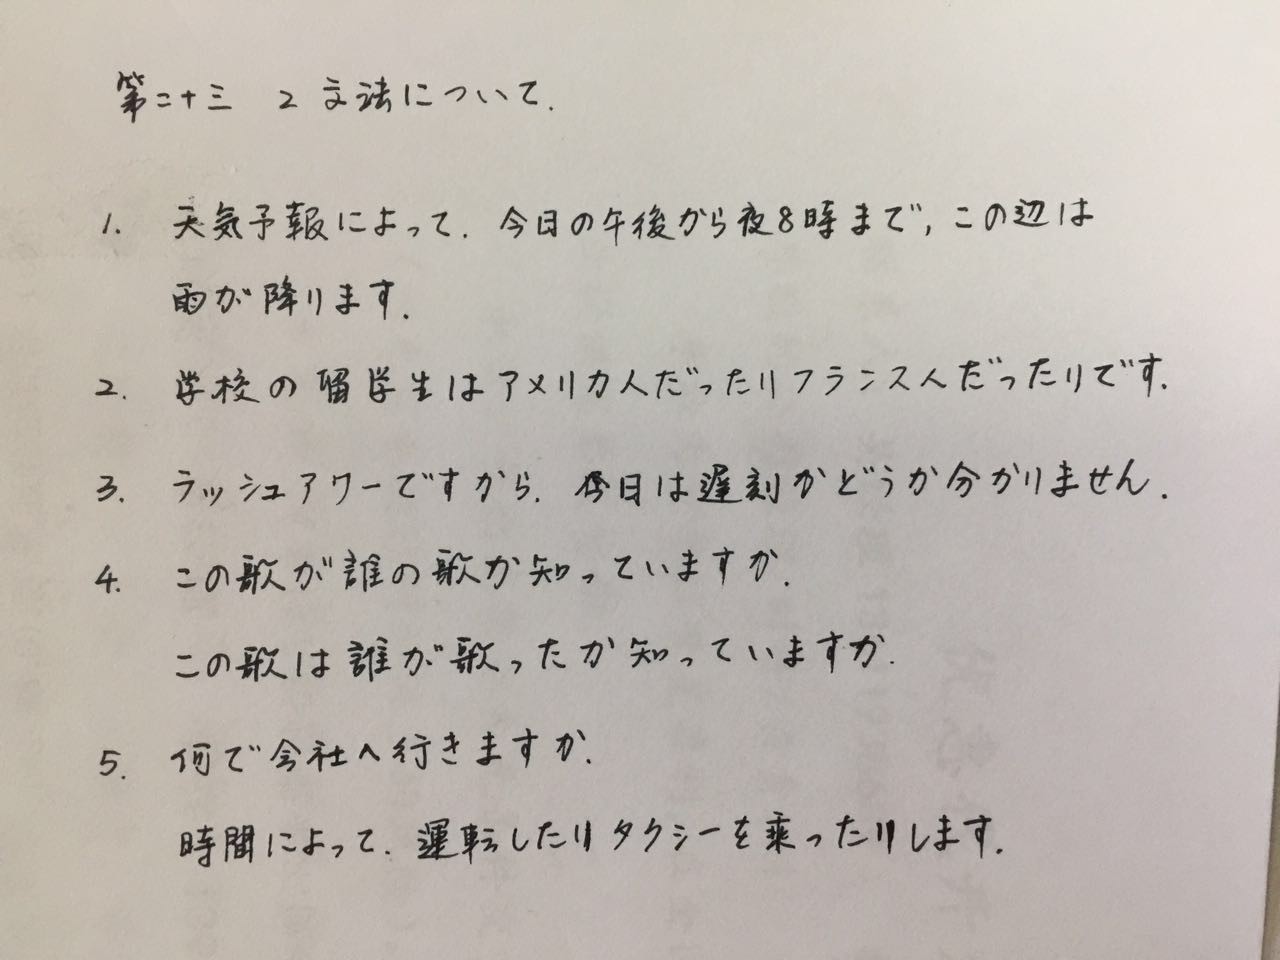 第二十三 2 文法について.
1. 天気予報によって. 今日の午後から夜8時まで, この辺は
雨が降ります.
2. 学校の留学生はアメリカ人だったりフランス人だったりです.
3. ラッシュアワーですから. 今日は遅刻かどうか分かりません.
4. この歌が誰の歌か知っていますか.
この歌は誰が歌ったか知っていますか.
5. 何で会社へ行きますか.
時間によって. 運転したりタクシーを乗ったりします.